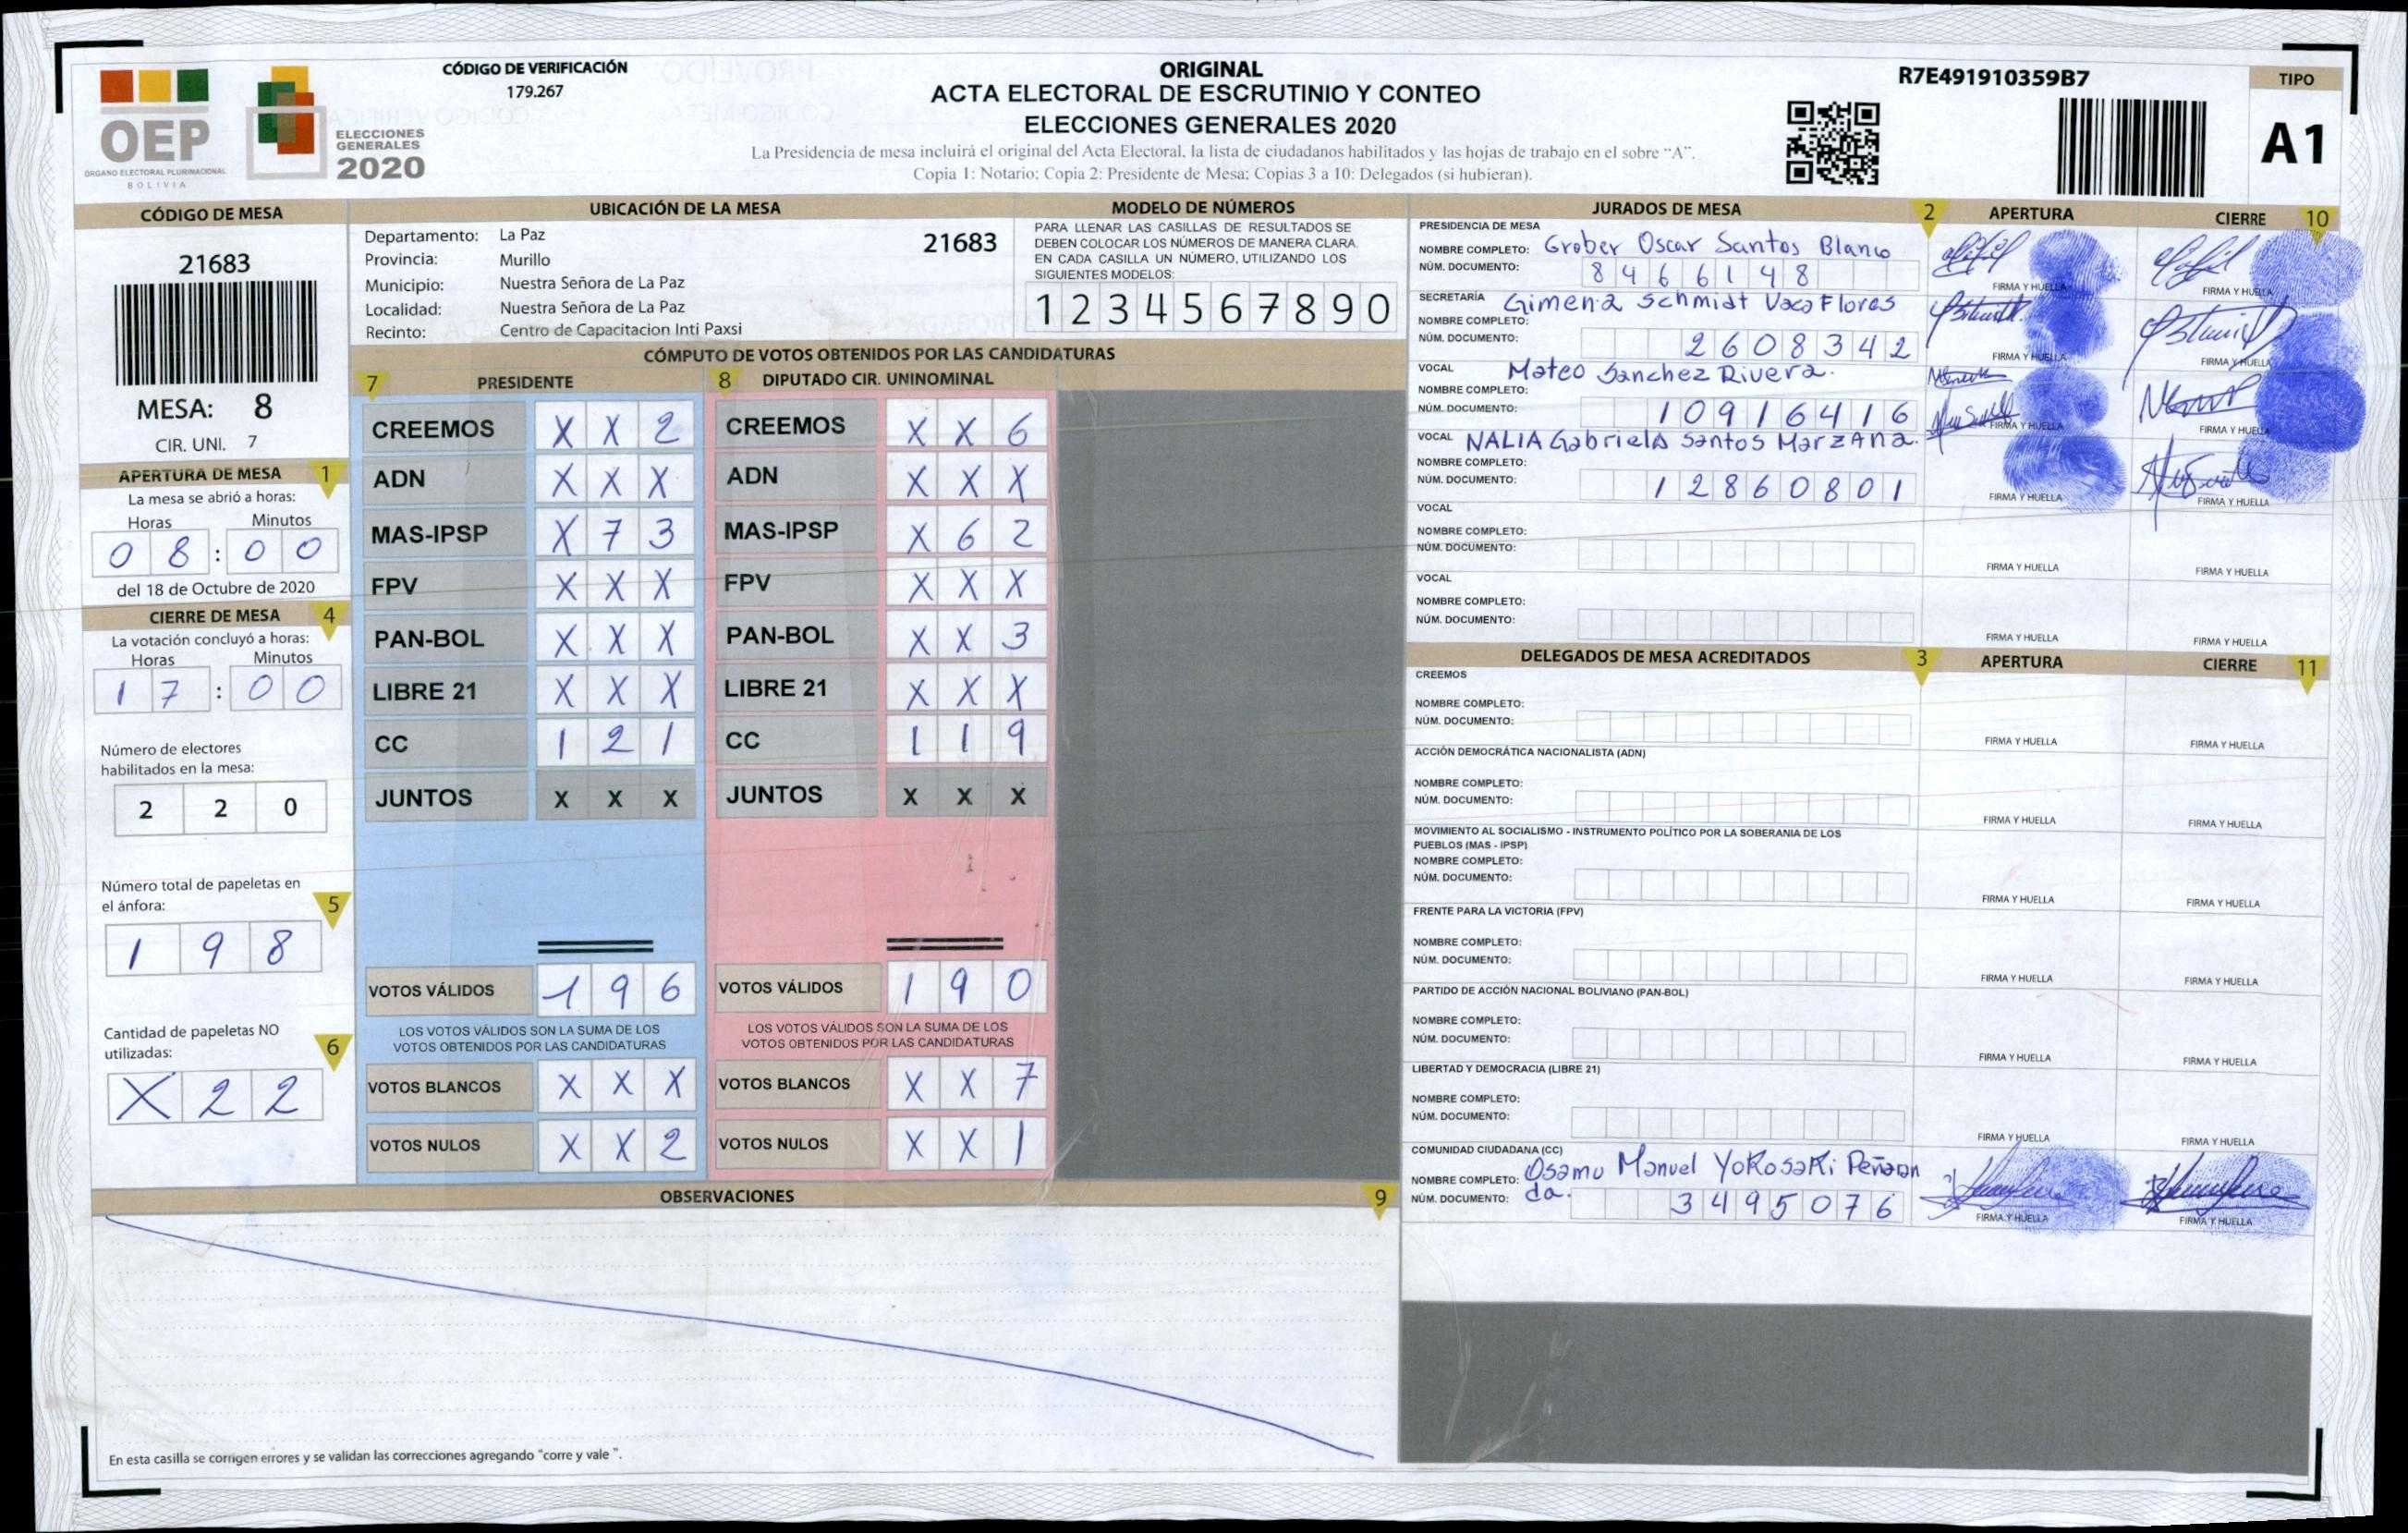 OEP
ÓRGANO ELECTORAL PLURINACIONAL
BOLIVIA
ELECCIONES
GENERALES
2020
CÓDIGO DE VERIFICACIÓN
179.267
ORIGINAL
ACTA ELECTORAL DE ESCRUTINIO Y CONTEO
ELECCIONES GENERALES 2020
La Presidencia de mesa incluirá el original del Acta Electoral, la lista de ciudadanos habilitados y las hojas de trabajo en el sobre “A”.
Copia 1: Notario; Copia 2: Presidente de Mesa; Copias 3 a 10: Delegados (si hubieran).
R7E491910359B7
TIPO
A1
CÓDIGO DE MESA
21683
MESA: 8
CIR. UNI. 7
APERTURA DE MESA 1
La mesa se abrió a horas:
Horas Minutos
0 8 : 0 0
del 18 de Octubre de 2020
CIERRE DE MESA 4
La votación concluyó a horas:
Horas Minutos
1 7 : 0 0
Número de electores
habilitados en la mesa:
2 2 0
Número total de papeletas en
el ánfora: 5
1 9 8
Cantidad de papeletas NO
utilizadas: 6
X 2 2
UBICACIÓN DE LA MESA
Departamento: La Paz 21683
Provincia: Murillo
Municipio: Nuestra Señora de La Paz
Localidad: Nuestra Señora de La Paz
Recinto: Centro de Capacitacion Inti Paxsi
MODELO DE NÚMEROS
PARA LLENAR LAS CASILLAS DE RESULTADOS SE
DEBEN COLOCAR LOS NÚMEROS DE MANERA CLARA.
EN CADA CASILLA UN NÚMERO, UTILIZANDO LOS
SIGUIENTES MODELOS:
1 2 3 4 5 6 7 8 9 0
CÓMPUTO DE VOTOS OBTENIDOS POR LAS CANDIDATURAS
7 PRESIDENTE 8 DIPUTADO CIR. UNINOMINAL
CREEMOS X X 2 CREEMOS X X 6
ADN X X X ADN X X X
MAS-IPSP X 7 3 MAS-IPSP X 6 2
FPV X X X FPV X X X
PAN-BOL X X X PAN-BOL X X 3
LIBRE 21 X X X LIBRE 21 X X X
CC 1 2 1 CC 1 1 9
JUNTOS X X X JUNTOS X X X
VOTOS VÁLIDOS 1 9 6 VOTOS VÁLIDOS 1 9 0
LOS VOTOS VÁLIDOS SON LA SUMA DE LOS LOS VOTOS VÁLIDOS SON LA SUMA DE LOS
VOTOS OBTENIDOS POR LAS CANDIDATURAS VOTOS OBTENIDOS POR LAS CANDIDATURAS
VOTOS BLANCOS X X X VOTOS BLANCOS X X 7
VOTOS NULOS X X 2 VOTOS NULOS X X 1
OBSERVACIONES 9
En esta casilla se corrigen errores y se validan las correcciones agregando "corre y vale ".
JURADOS DE MESA 2 APERTURA CIERRE 10
PRESIDENCIA DE MESA
NOMBRE COMPLETO: Grober Oscar Santos Blanco
NÚM. DOCUMENTO: 8 4 6 6 1 4 8
FIRMA Y HUELLA FIRMA Y HUELLA
SECRETARÍA Gimena Schmidt Vaca Flores
NOMBRE COMPLETO:
NÚM. DOCUMENTO: 2 6 0 8 3 4 2
FIRMA Y HUELLA FIRMA Y HUELLA
VOCAL Mateo Sanchez Rivera.
NOMBRE COMPLETO:
NÚM. DOCUMENTO: 1 0 9 1 6 4 1 6
FIRMA Y HUELLA FIRMA Y HUELLA
VOCAL NALIA Gabriela Santos MarzAna.
NOMBRE COMPLETO:
NÚM. DOCUMENTO: 1 2 8 6 0 8 0 1
FIRMA Y HUELLA FIRMA Y HUELLA
VOCAL
NOMBRE COMPLETO:
NÚM. DOCUMENTO:
FIRMA Y HUELLA FIRMA Y HUELLA
VOCAL
NOMBRE COMPLETO:
NÚM. DOCUMENTO:
FIRMA Y HUELLA FIRMA Y HUELLA
DELEGADOS DE MESA ACREDITADOS 3 APERTURA CIERRE 11
CREEMOS
NOMBRE COMPLETO:
NÚM. DOCUMENTO:
FIRMA Y HUELLA FIRMA Y HUELLA
ACCIÓN DEMOCRÁTICA NACIONALISTA (ADN)
NOMBRE COMPLETO:
NÚM. DOCUMENTO:
FIRMA Y HUELLA FIRMA Y HUELLA
MOVIMIENTO AL SOCIALISMO - INSTRUMENTO POLÍTICO POR LA SOBERANIA DE LOS
PUEBLOS (MAS - IPSP)
NOMBRE COMPLETO:
NÚM. DOCUMENTO:
FIRMA Y HUELLA FIRMA Y HUELLA
FRENTE PARA LA VICTORIA (FPV)
NOMBRE COMPLETO:
NÚM. DOCUMENTO:
FIRMA Y HUELLA FIRMA Y HUELLA
PARTIDO DE ACCIÓN NACIONAL BOLIVIANO (PAN-BOL)
NOMBRE COMPLETO:
NÚM. DOCUMENTO:
FIRMA Y HUELLA FIRMA Y HUELLA
LIBERTAD Y DEMOCRACIA (LIBRE 21)
NOMBRE COMPLETO:
NÚM. DOCUMENTO:
FIRMA Y HUELLA FIRMA Y HUELLA
COMUNIDAD CIUDADANA (CC)
NOMBRE COMPLETO: Osamu Manuel YoKosaKi Peñaran
NÚM. DOCUMENTO: da. 3 4 9 5 0 7 6
FIRMA Y HUELLA FIRMA Y HUELLA